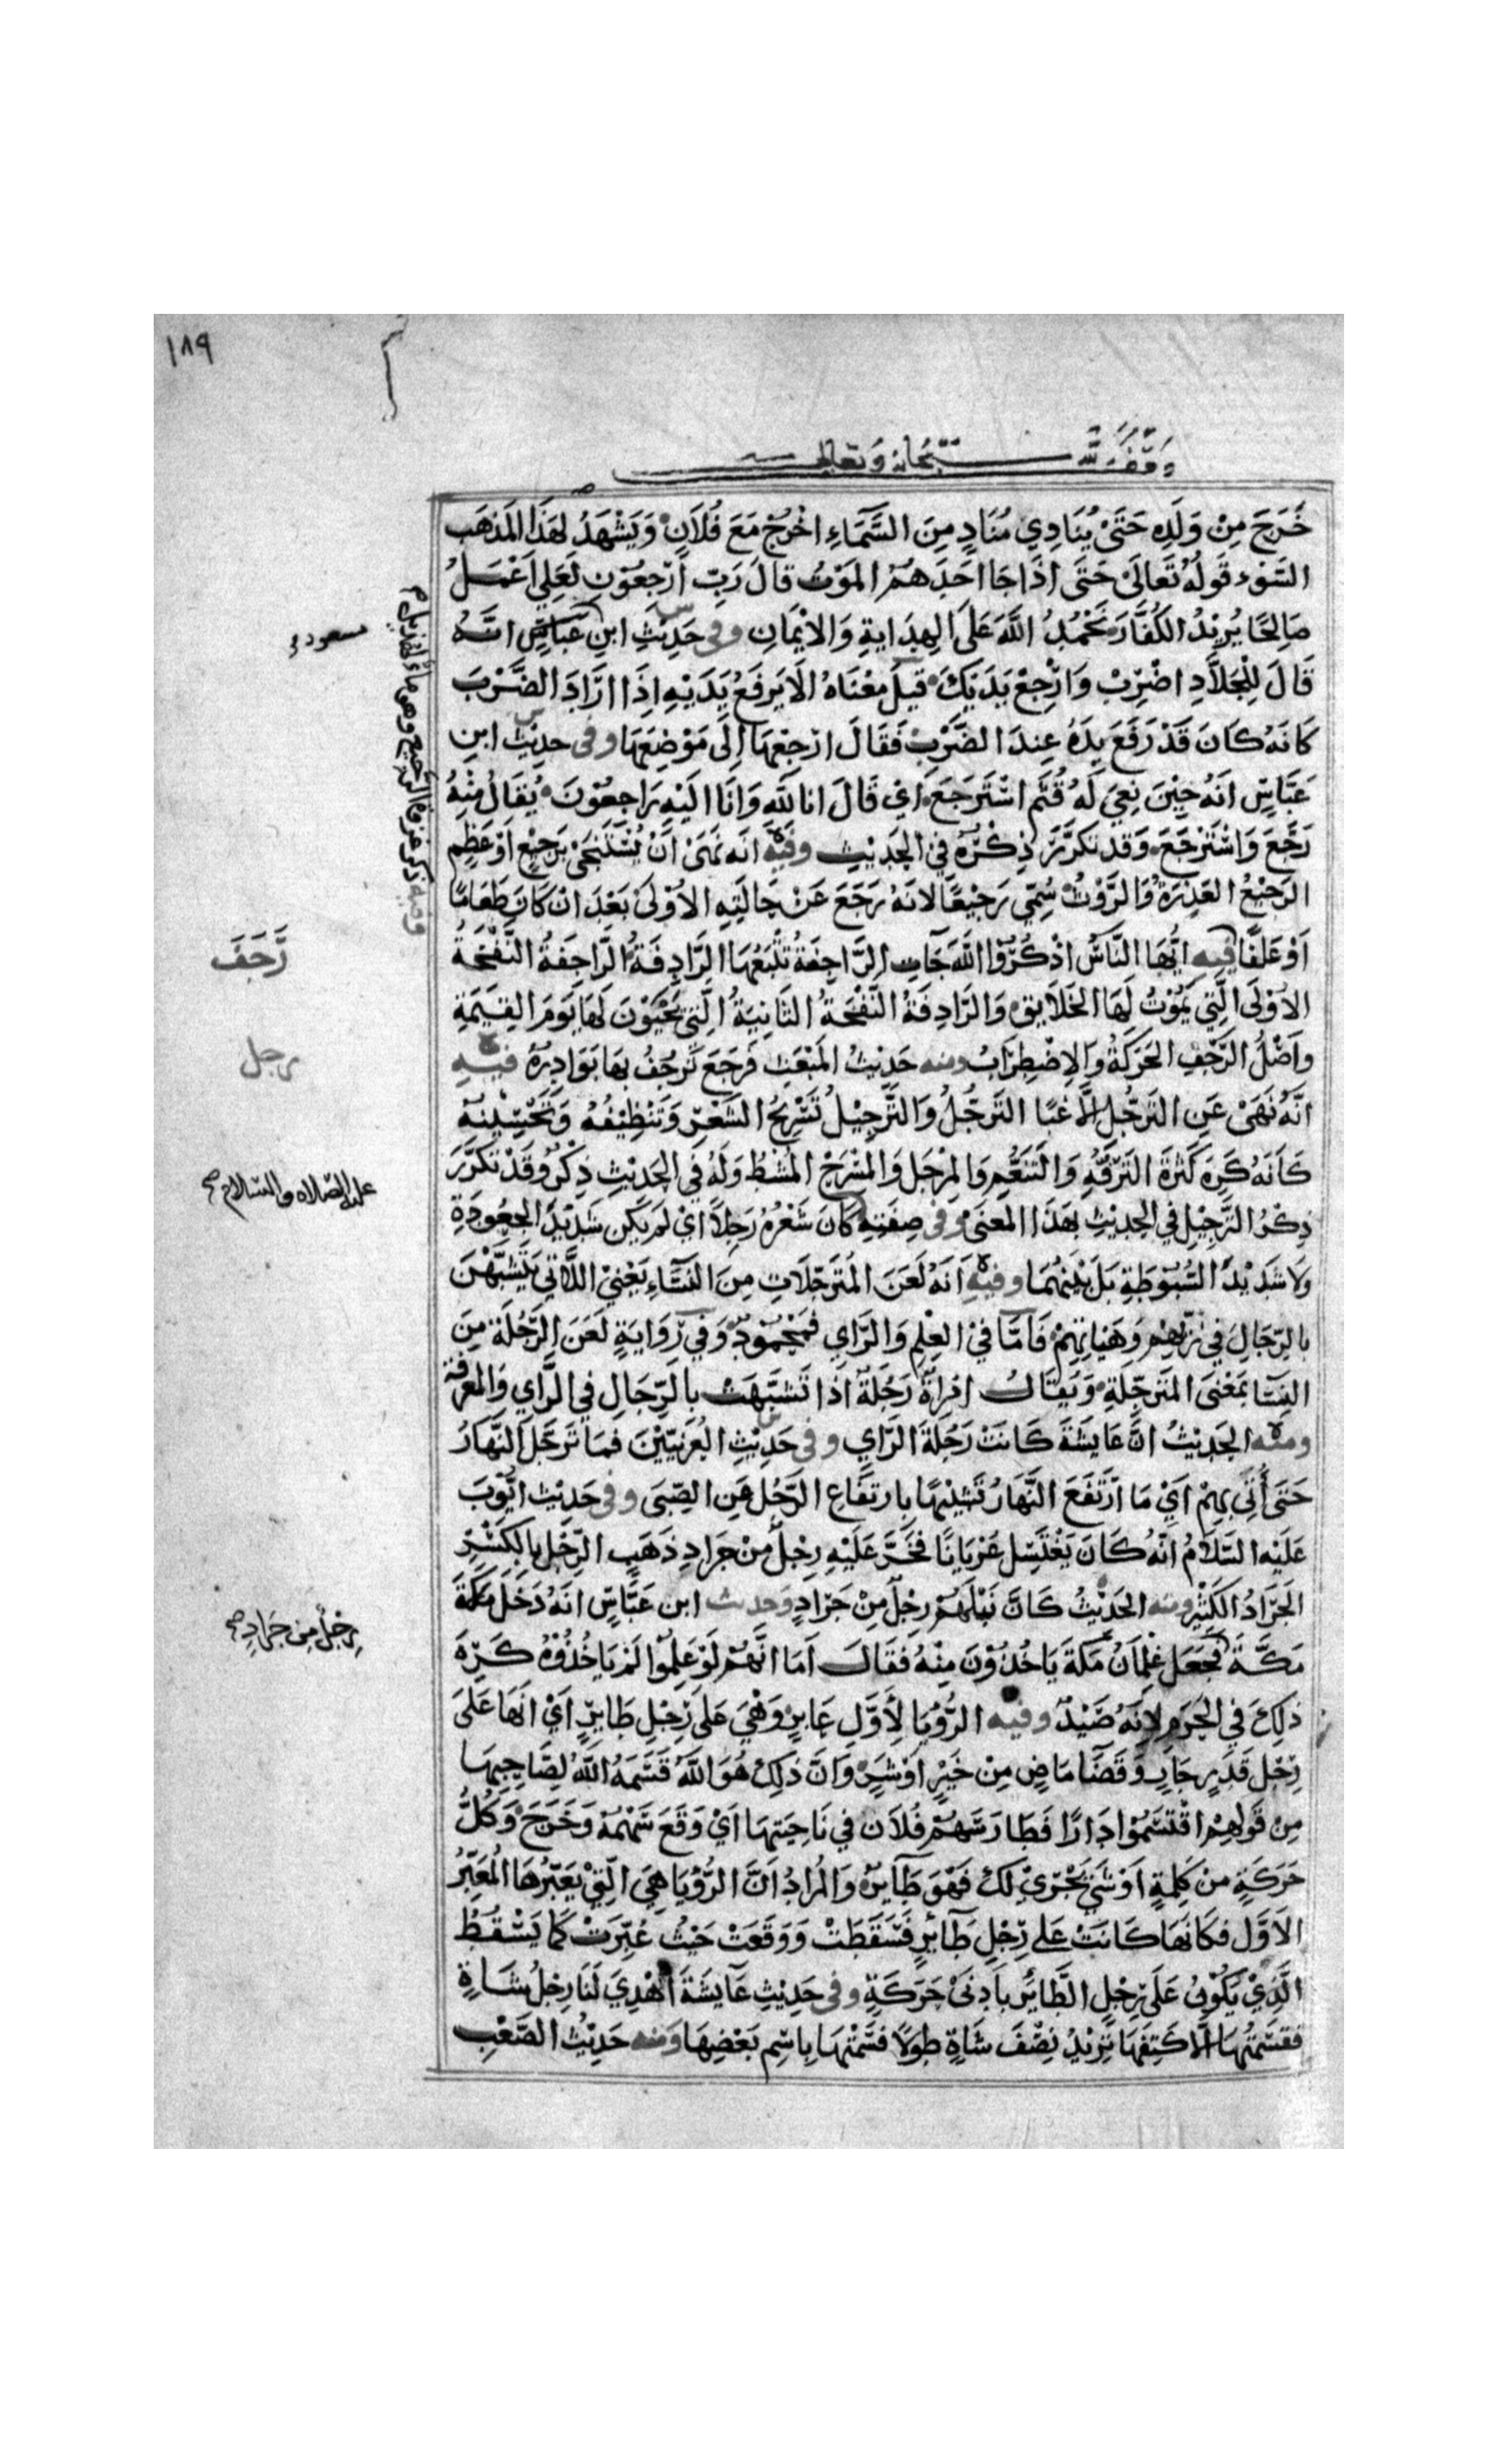 ١٨٩
وقف لله سبحانه وتعالى
خَرَجَ مِنْ وَلَدِه حَتَى يُنَادِي مُنَادٍ مِنَ السَّمَاءِ اخْرُجْ مَعَ فُلَانٍ وَيَشْهَدُ لهَذَا المَذهَب
السّوء قَولُهُ تَعَالَى حَتَى اذَا جَا احَدَهُمْ المَوْتُ قَالَ رَبِّ ارْجِعُوْنِ لَعَلِي اَعْمَلُ
صَالِحًا يُرِيْدُ الكُفَّارَ نَحْمُدُ اللَّهَ عَلَى الهِدَايةِ وَالاِيْمَانِ وفي حَدِيْثِ ابنِ عَبَاسٍ انَّهُ
مسعود
قَالَ لِلْجَلَّادِ اضْرِبْ وَارْجِعْ يَدَيْكَ قيلَ مَعْنَاهُ الَا يَرفَعُ يَدَيْهِ اِذَا ارَادَ الضَّرْبَ
كَانَهُ كَانَ قَدْ رَفَعَ يدَهُ عِندَ الضَّرْبِ فَقَالَ ارْجِعْهَا اِلَى مَوْضِعِهَا وفى حديْث ابنِ
عَبَّاسٍ انَهُ حِيْنَ نُعِيَ لَهُ قُثَم اسْتَرجَعَ اي قَالَ انا للهِ وَانَا اليْهِ رَاجِعُوْنَ يُقَالُ مِنْهُ
رَجَّعَ وَاسْتَرْجَعَ وَقد تكرَّرَ ذِكْرُهُ في الحَديْثِ وفيه انَه نَهَى اَنْ يُسْتَنجَى بَرجِيْعٍ اوْ عَظْمٍ
الرَجِيْعُ العَذِرَةُ وَالرَّوْثُ سُمِّي رَجِيْعًا لانَهُ رَجَعَ عَنْ حَالَتِهِ الاُوْلَى بَعْدَ انْ كَانَ طَعَامًا
وفيه ذكر غزوة الرجيع وهى ماء لهذيل
اَوْ عَلَفًا فيه ايُّهَا النَّاسُ اذْكُرُوا اللَّهَ جَاءتِ الرَّاجِفَةُ تَتْبَعُهَا الرَّادِفَةُ الرَّاجِفَةُ النَّفْخَةُ
رَجَفَ
الاُوْلَى الَّتِي يَمُوْتُ لَهَا الخَلَايِق وَالرَّادِفَةُ النَّفْخَةُ الثَانِيَةُ الَّتِي يَحْيَوْنَ لَهَا يَومَ القِيَمَةِ
وَاصْلُ الرَّجْفِ الحَرَكَةُ وَالاِضْطِرَابُ ومنه حَدِيْثُ المَبْعَثِ فَرَجَعَ تَرجُفُ بهَا بَوَادِرُهُ فيه
رجل
انَّهُ نَهَى عَنِ التَرَجُّلِ اِلَّا غبًّا التَرَجُّلُ وَالتَّرجِيْلُ تَسْرِيْحُ الشَعْرِ وَتَنْظِيْفُهُ وَتَحْسِيْنهُ
كَاَنَهُ كَرِهَ كَثْرةَ التَرَفُّهِ وَالتَنَعُّمِ وَالمِرْجَلُ وَالمِسْرَحُ المُشطُ وَلَهُ فى الحَديْثِ ذِكْرٌ وَقَدْ تَكَرَّرَ
ذِكْرُ التَّرْجِيْلِ فِي الحَدِيْثِ بهَذَا المعنَى وفى صِفَتِهِ كَانَ شَعْرُهُ رَجِلًا ايْ لَمْ يَكُن شَدِيْدَ الجُعُودَةِ
عليه الصلاه والسلام صح
وَلَا شَدِيْدَ السُّبُوطَةِ بَل بَيْنَهُمَا وفيه اَنَهُ لَعَنَ المُتَرَجِّلَاتِ مِنَ النسَاءِ يَعْنِيْ اللَّاتى يَتَشَبَّهْنَ
بالرِّجَالِ فى زيِّهِم وَهَيْاتهِمْ فَاَمَّا فىْ العِلْمِ وَالرَّاي فَمَحْمُوْدٌ وَفِى رِوَايَةٍ لَعَنَ الرَّجُلَةَ مِنَ
النِسَا بمَعْنَى المتَرَجِّلَةِ وَيُقَالُ امْرَاةٌ رَجُلَةٌ اذَا تَشَبَّهَتْ بالرِّجَالِ في الرَّاي وَالمَعْرِفَة
ومنه الحَدِيْثُ انَّ عَايشَةَ كَانَتْ رَجُلَةَ الرَّاي وفى حَدِيْثِ العُرَنِيّيْنَ فَمَا تَرَجَّلَ النَّهَارُ
حَتَى أُتِى بهِمْ اَيْ مَا ارْتَفَعَ النَّهَارُ تَشْبِيْهًا بارتفَاعِ الرَّجُل عَنِ الصِّبَى وفى حَديْث ايُّوْبَ
عَلَيْهِ السَّلَامُ اَنَّهُ كَانَ يَغْتَسِل عُرْيَانًا فَخَرَّ عَلَيْهِ رِجْلٌ مِنْ جَرَادِ ذَهَبٍ الرِّجْل بالكَسْرِ
الجَرَادُ الكَثِيْرُ ومنه الحَدِيْثُ كَانَ نَبْلَهُمْ رِجْلٌ مِنْ جَرَادٍ وحديث ابن عَبَّاسٍ انَهُ دَخَلَ مَكَةَ
رِجْلٌ مِن جَرَادٍ صح
مَكَّةَ فَجَعَل غِلمَانُ مَكَةَ يَاخُذُوْنَ مِنْهُ فقَالَ اَمَا انَّهُمْ لَوْ عَلِمُوْا لَمْ يَاخُذُوْهُ كَرِهَ
ذلِكَ فى الحَرَمِ لِانَهُ صَيْدٌ وفيه الرُّؤْيَا لِأَوَّلِ عَابِرٍ وَهْيَ عَلَى رِجْلِ طَايِرٍ اَيْ انَهَا عَلَى
رِجْلِ قَدَرٍ جَارٍ وَقَضَا مَاضٍ مِنْ خَيْرٍ اوْ شَرٍّ وَانَّ ذلِكَ هُوَ اللَّهُ قَسَمَهُ اللَّهُ لِصَاحِبِهَا
مِن قَولِهِم اقْتَسَمُوْا دَارًا فَطَارَ سَهْمُ فُلَان في نَاحِيَتِهَا اَيْ وَقَعَ سَهْمُهُ وَخَرَجَ وَكُلُّ
حَرَكَةٍ مِنْ كَلِمَةٍ اَوْ شَيْ يَجْرِيْ لكَ فَهْوَ طَايِرٌ وَالمُرَادُ اَنَّ الرُّؤيَا هِيَ الَّتِيْ يُعَبِّرُهَا المُعَبِّرُ
الاَوَّل فكَانَهَا كَانَتْ عَلى رِجْلِ طَآئِرٍ فَسَقَطَتْ وَوَقَعَتْ حَيْثُ عُبِّرَتْ كَمَا يَسْقُطُ
الَّذِيْ يَكُوْنُ عَلَى رِجْلِ الطَّائِر باَدنَى حَرَكَةٍ وفى حَدِيْثِ عَايشَةَ اُهْدِيَ لَنَا رِجْلُ شَاةٍ
فَقَسَمْتُهَا اِلَّا كَتِفَهَا تُرِيْدُ نِصْفَ شَاةٍ طُولًا فسَمَّتْهَا بِاسْمِ بَعْضِهَا وَمنه حَدِيْثُ الصَّعْبِ